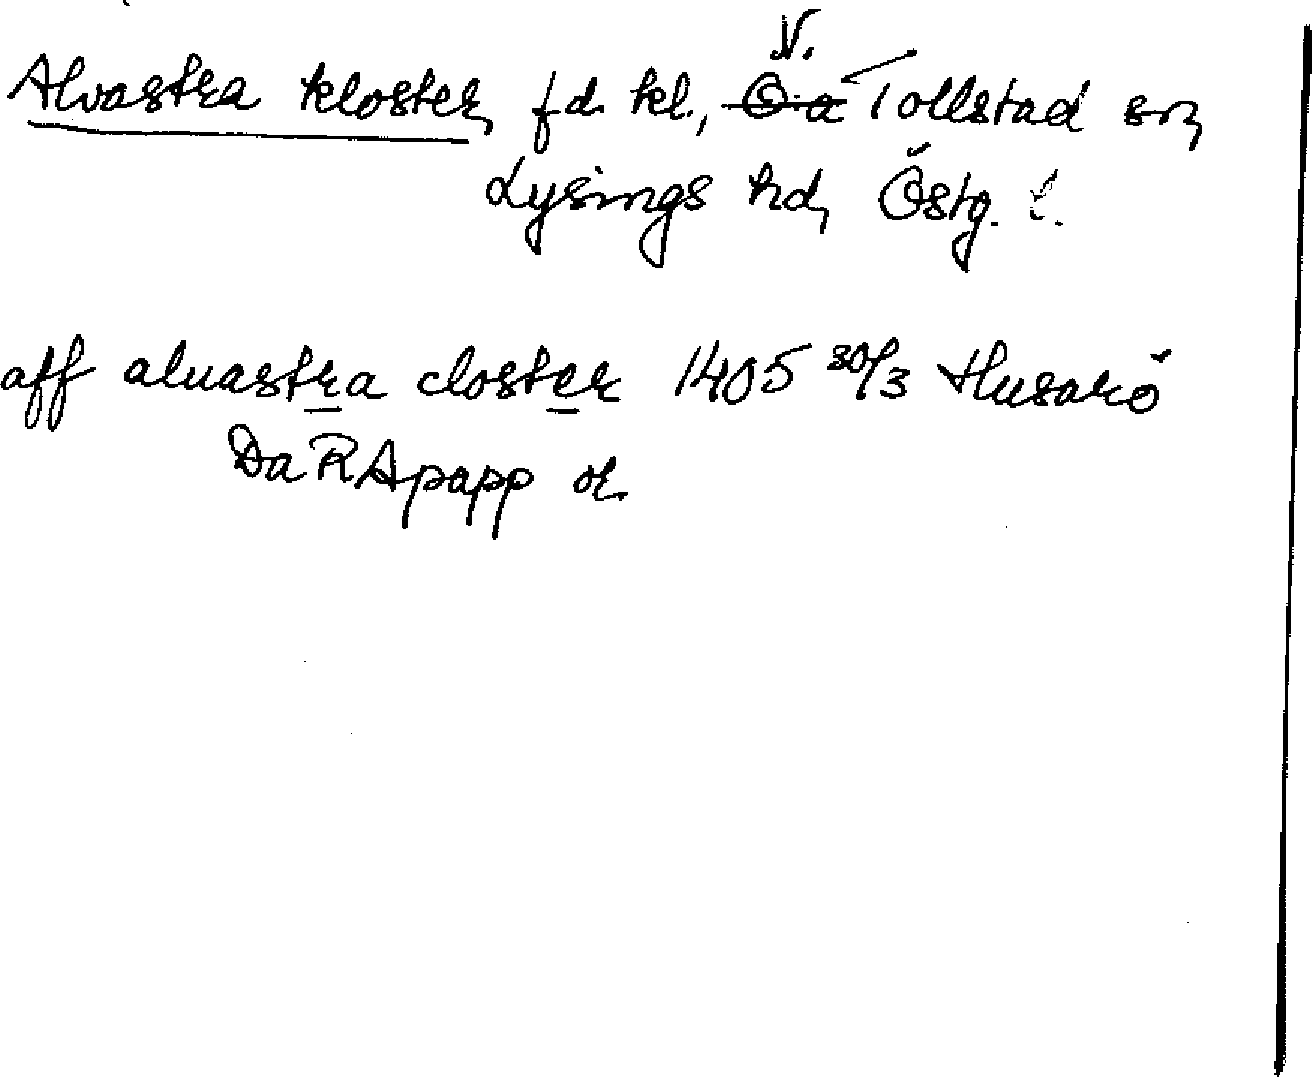 Alvastra kloster, f.d. kl., V. Tollstad sn,
Lysings hd, Östg. l.
aff aluastra closter 1405 30/3 Husarö
Da RApapp or.